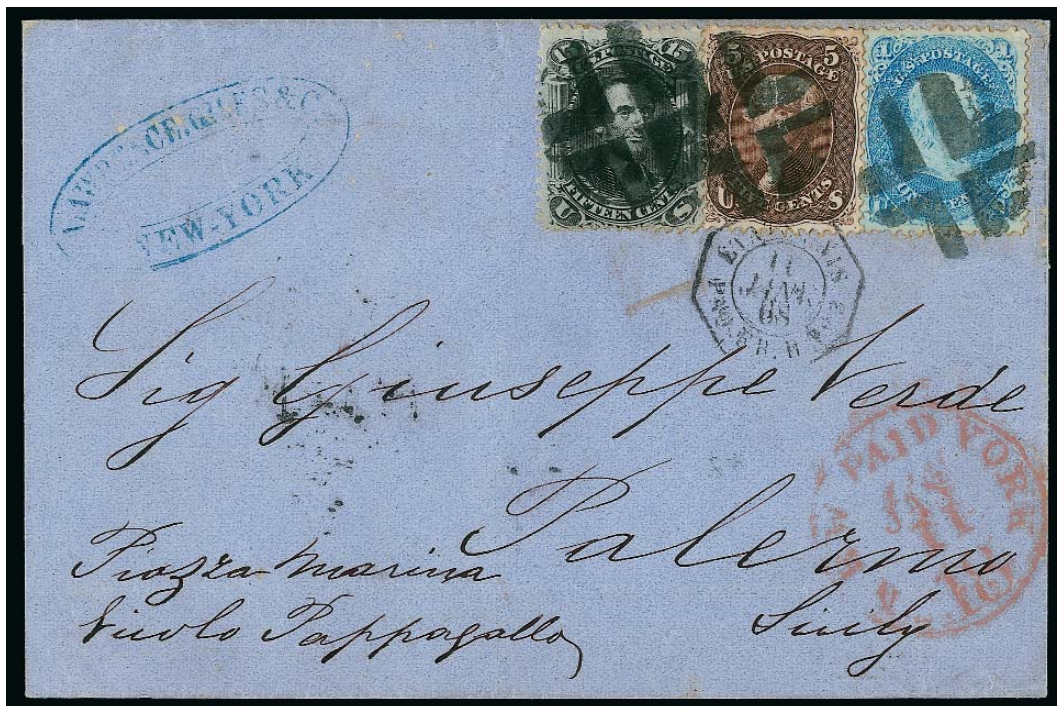 LAWRENCE, GILES & Co
NEW-YORK
15 15
FIFTEEN CENTS
U S
5 5
U.S. POSTAGE
FIVE CENTS
U S
1 1
U.S. POSTAGE
ONE
11
JANV.
68
Sig Giuseppe Verde
Palermo
Sicily
Piazza Marina
Vicolo Pappagallo
NEW PAID YORK
11